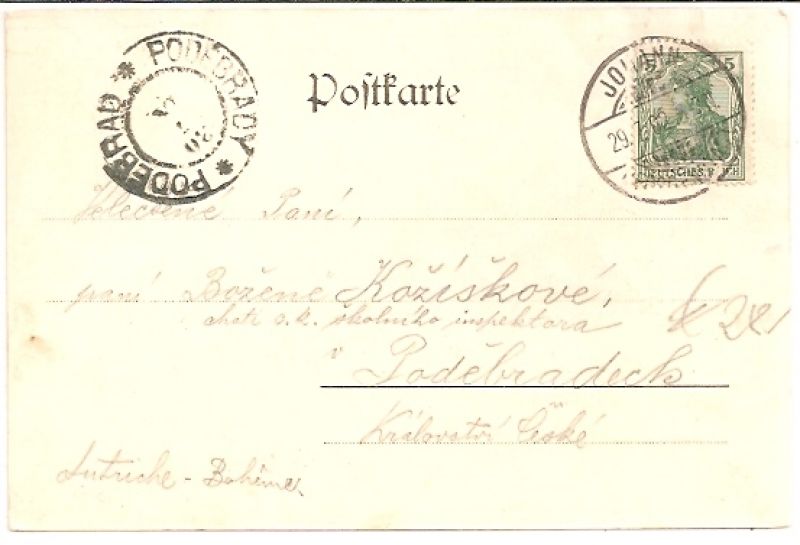 * PODĚBRADY * PODĚBRAD
Postkarte
29.
5
DEUTSCHES REICH
Velectěné Paní,
paní Boženě Kožíškové,
choti c.k. školního inspektora
v Poděbradech
Království České
Autriche - Bohême